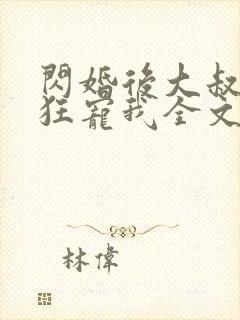 閃婚後大叔
狂寵我全文
林偉